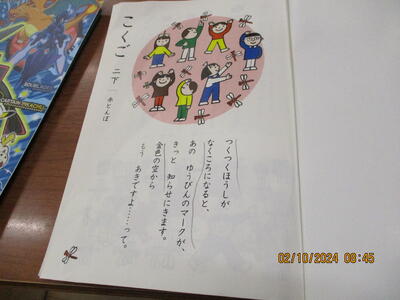 こくご 二下 赤とんぼ
つくつくほうしが
なくころになると、
あの ゆうびんのマークが、
きっと 知らせにきます。
金色の空から
もう あきですよ……って。
02/10/2024 08:45